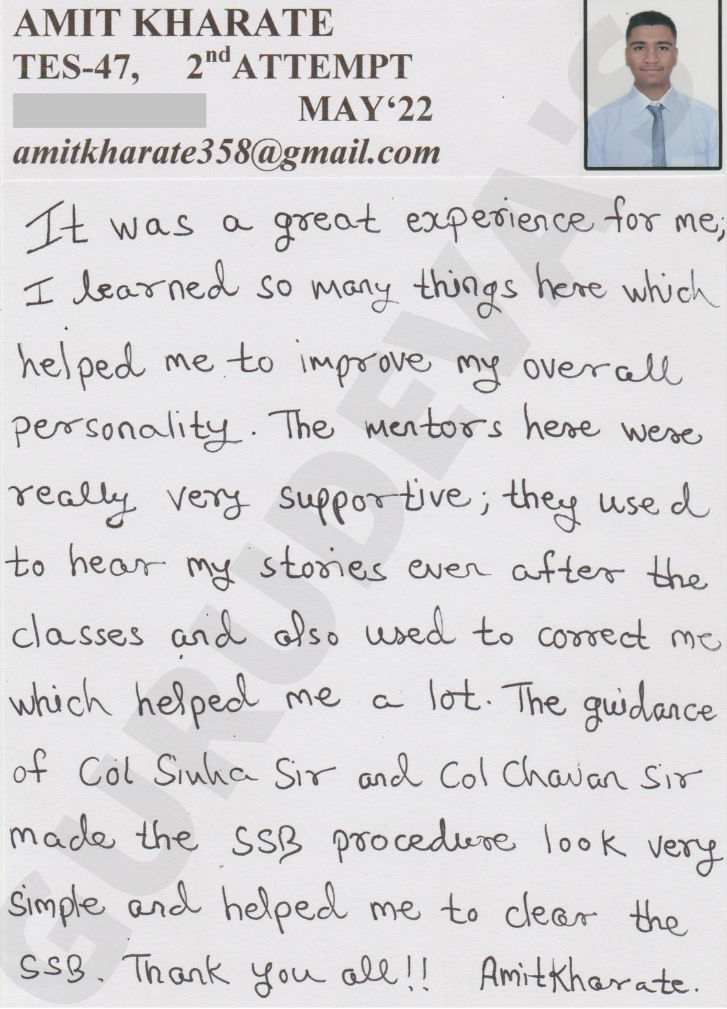 AMIT KHARATE
TES-47, 2nd ATTEMPT
MAY‘22
amitkharate358@gmail.com
It was a great experience for me;
I learned so many things here which
helped me to improve my overall
personality. The mentors here were
really very supportive; they used
to hear my stories even after the
classes and also used to correct me
which helped me a lot. The guidance
of Col Sinha Sir and Col Chavan Sir
made the SSB procedure look very
simple and helped me to clear the
SSB. Thank you all!! Amitkharate.
GURUDEVA'S